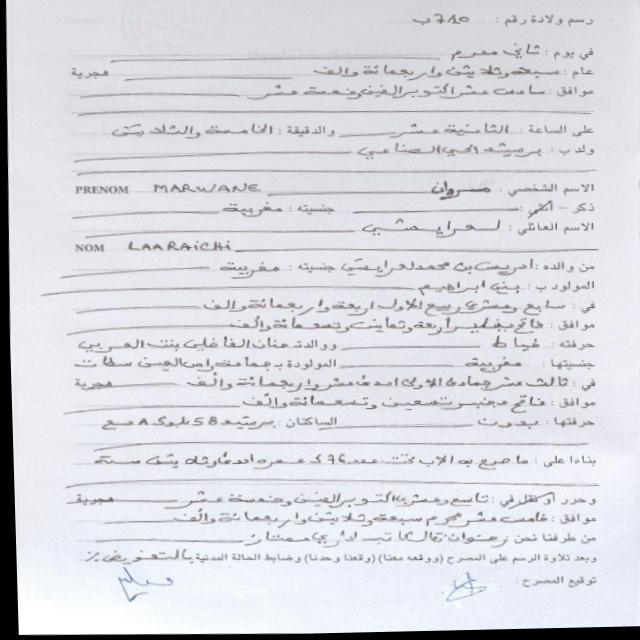 رسم ولادة رقم : 710 ب
في يوم : ثاني محرم
عام : سبعة وثلاثين واربعمائة والف هجرية
موافق : سادس عشر اكتوبر الفين وخمسة عشر
على الساعة : الثانية عشر والدقيقة : الخامسة والثلاثين
ولد ب : برشيد الحي الصناعي
الاسم الشخصي : مروان PRENOM MARWANE
ذكر - أنثى : جنسيته : مغربية
الاسم العائلي : لعرايشي
NOM LAARAICHI
من والده : ادريس بن محمد لعرايشي جنسيته : مغربية
المولود ب : بني ابراهيم
في : سابع وعشري ربيع الاول اربعة واربعمائة والف
موافق : فاتح يناير اربعة وثمانين وتسعمائة والف
حرفته : خياط ووالدته حنان الفاضلي بنت العربي
جنسيتها : مغربية المولودة ب جماعة راس العين سطات
في : ثالث عشر جمادى الاولى احدى عشر واربعمائة والف هجرية
موافق : فاتح دجنبر تسعين وتسعمائة والف
حرفتها : بدون الساكنان : برشيد 58 بلوك A
بناءا على : ما صرح به الاب تحت عدد 76 عمره احدى وثلاثين سنة
وحرر أو نقل في : تاسع وعشري اكتوبر الفين وخمسة عشر هجرية
موافق : خامس عشر محرم سبعة وثلاثين واربعمائة والف
من طرفنا نحن رضوان كاتب اداري ممتاز
وبعد تلاوة الرسم على المصرح (ووقعه معنا) (وقعنا وحدنا) وضابط الحالة المدنية بالتفويض
توقيع المصرح :